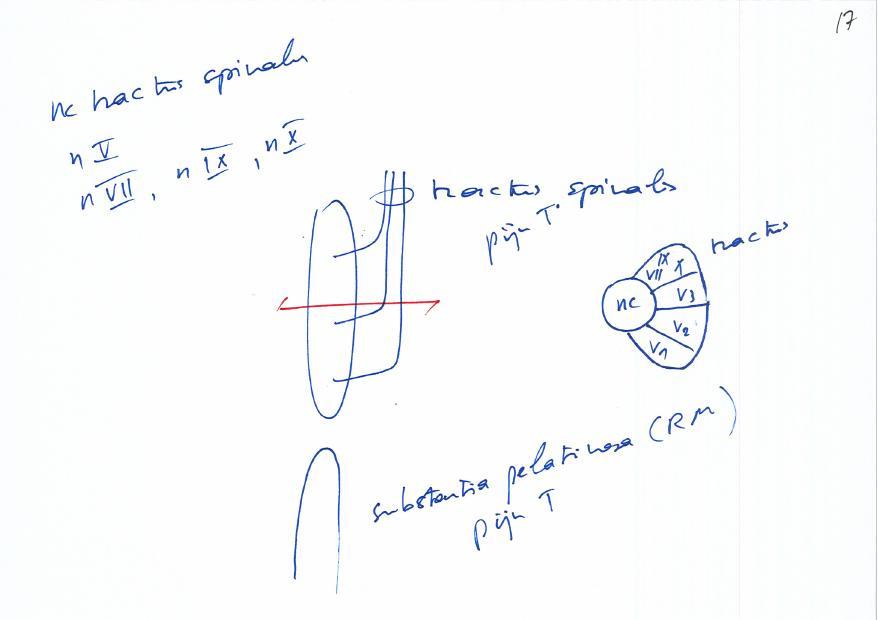 17
nc tractus spinalis
n V
n VII, n IX, n X
tractus spinalis
pijn T°
tractus
IX
VII X
nc
V3
V2
V1
substantia gelatinosa (RM)
pijn T